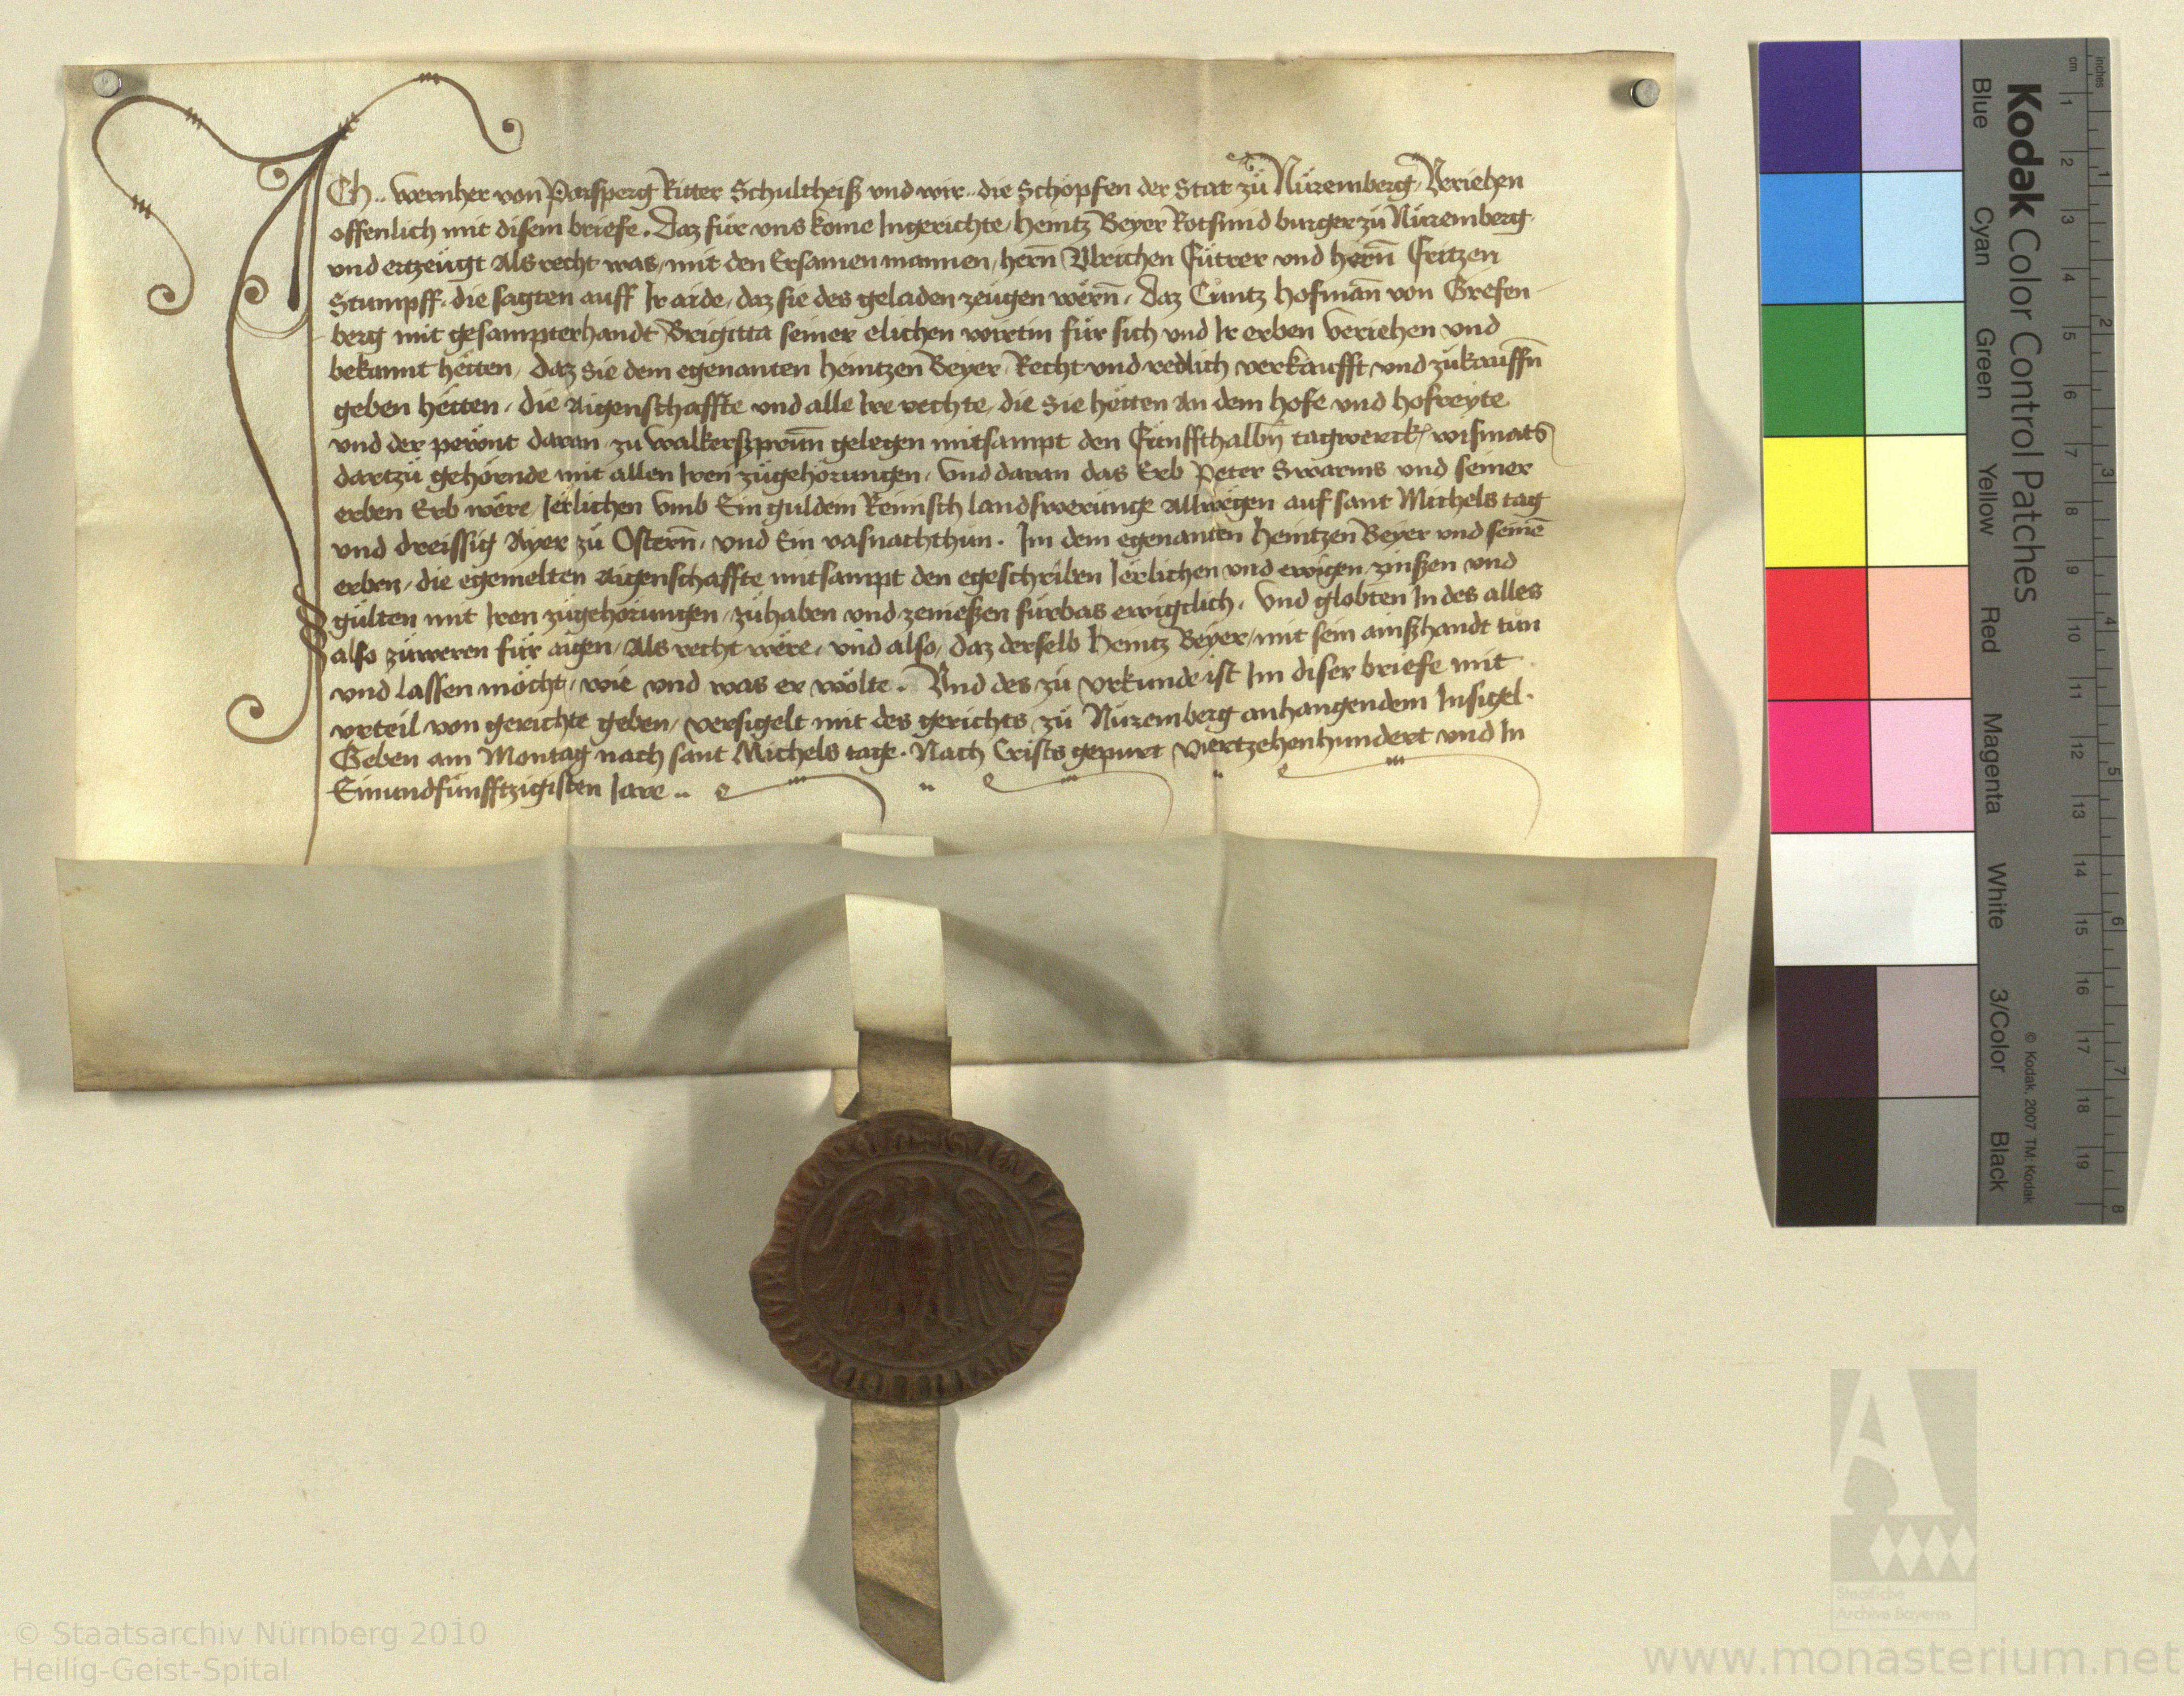 ICh .. wernher von Parsperg Ritter Schultheiß und wir .. die Schopfen der Stat zů Nůremberg Veriehen
offenlich mit disem briefe. Daz fůr uns kome Ingerichte, heintz Beyer Rotsmid burger zů Nůremberg
und ertzeugt Als recht was, mit den Ersamen mannen, herñ Ulrichen Fůtrer und herñ Fritzen
Stumpff, die sagten auff Ir aide, daz sie des geladen zeugen wërñ, Daz Cůntz hofmañ von Grefen-
berg mit gesampterhandt Brigitta seiner elichen wirtin fůr sich und Ir erben veriehen und
bekannt hëtten, Daz sie dem egenanten heintzen Beyer, Recht und redlich verkaufft und zůkauffñ
geben hëtten, die Aigenschaffte und alle Ire rechte, die Sie hëtten An dem hofe und hofreyte
und der pewnt daran, zu walkerßprun̄ gelegen mitsampt den Fünffthalbñ tagwerck wismats
dartzů gehörende mit allen Iren zůgehörungen, Und daran das Erb Peter Swarms und seiner
erben Erb wëre, Jerlichen umb Ein guldein Reinisch landswerunge Allwegen auf sant Michels tag
und dreissig Ayer zů Osterñ, und Ein vasnachthun. Im dem egenanten heintzen Beyer und seinē
erben, die egemelten Aigenschaffte mitsampt den egeschriben Jerlichen und ewigen zinßen und
gülten mit Iren zůgehörungen, zůhaben und zenießen fürbas ewigclich, Und globten In des alles
also zůweren für aigen, Als recht wëre, und also, daz derselb heintz Beyer, mit sein ainßhandt tůn
und lassen möcht, wie und was er wölte. Und des zů urkunde ist Im diser briefe mit
urteil von gerichte geben, versigelt mit des gerichts zů Nůremberg anhangendem Insigel.
Geben am Montag nach sant Michels tage. Nach Crists gepurt Viertzehenhundert und In
Einundfünfftzigisten Jare ..
Kodak Color Control Patches
Blue Cyan Green Yellow Red Magenta White 3/Color Black
© Kodak, 2007 TM: Kodak
cm 1 2 3 4 5 6 7 8 9 10 11 12 13 14 15 16 17 18 19
Inches 1 2 3 4 5 6 7 8
Staatliche
Archive Bayerns
© Staatsarchiv Nürnberg 2010
Heilig-Geist-Spital
www.monasterium.net